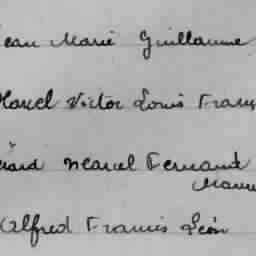 Jean Marie Guillaume
Marcel Victor Louis Franç
Gérard Marcel Fernand
Alfred Francis Léon